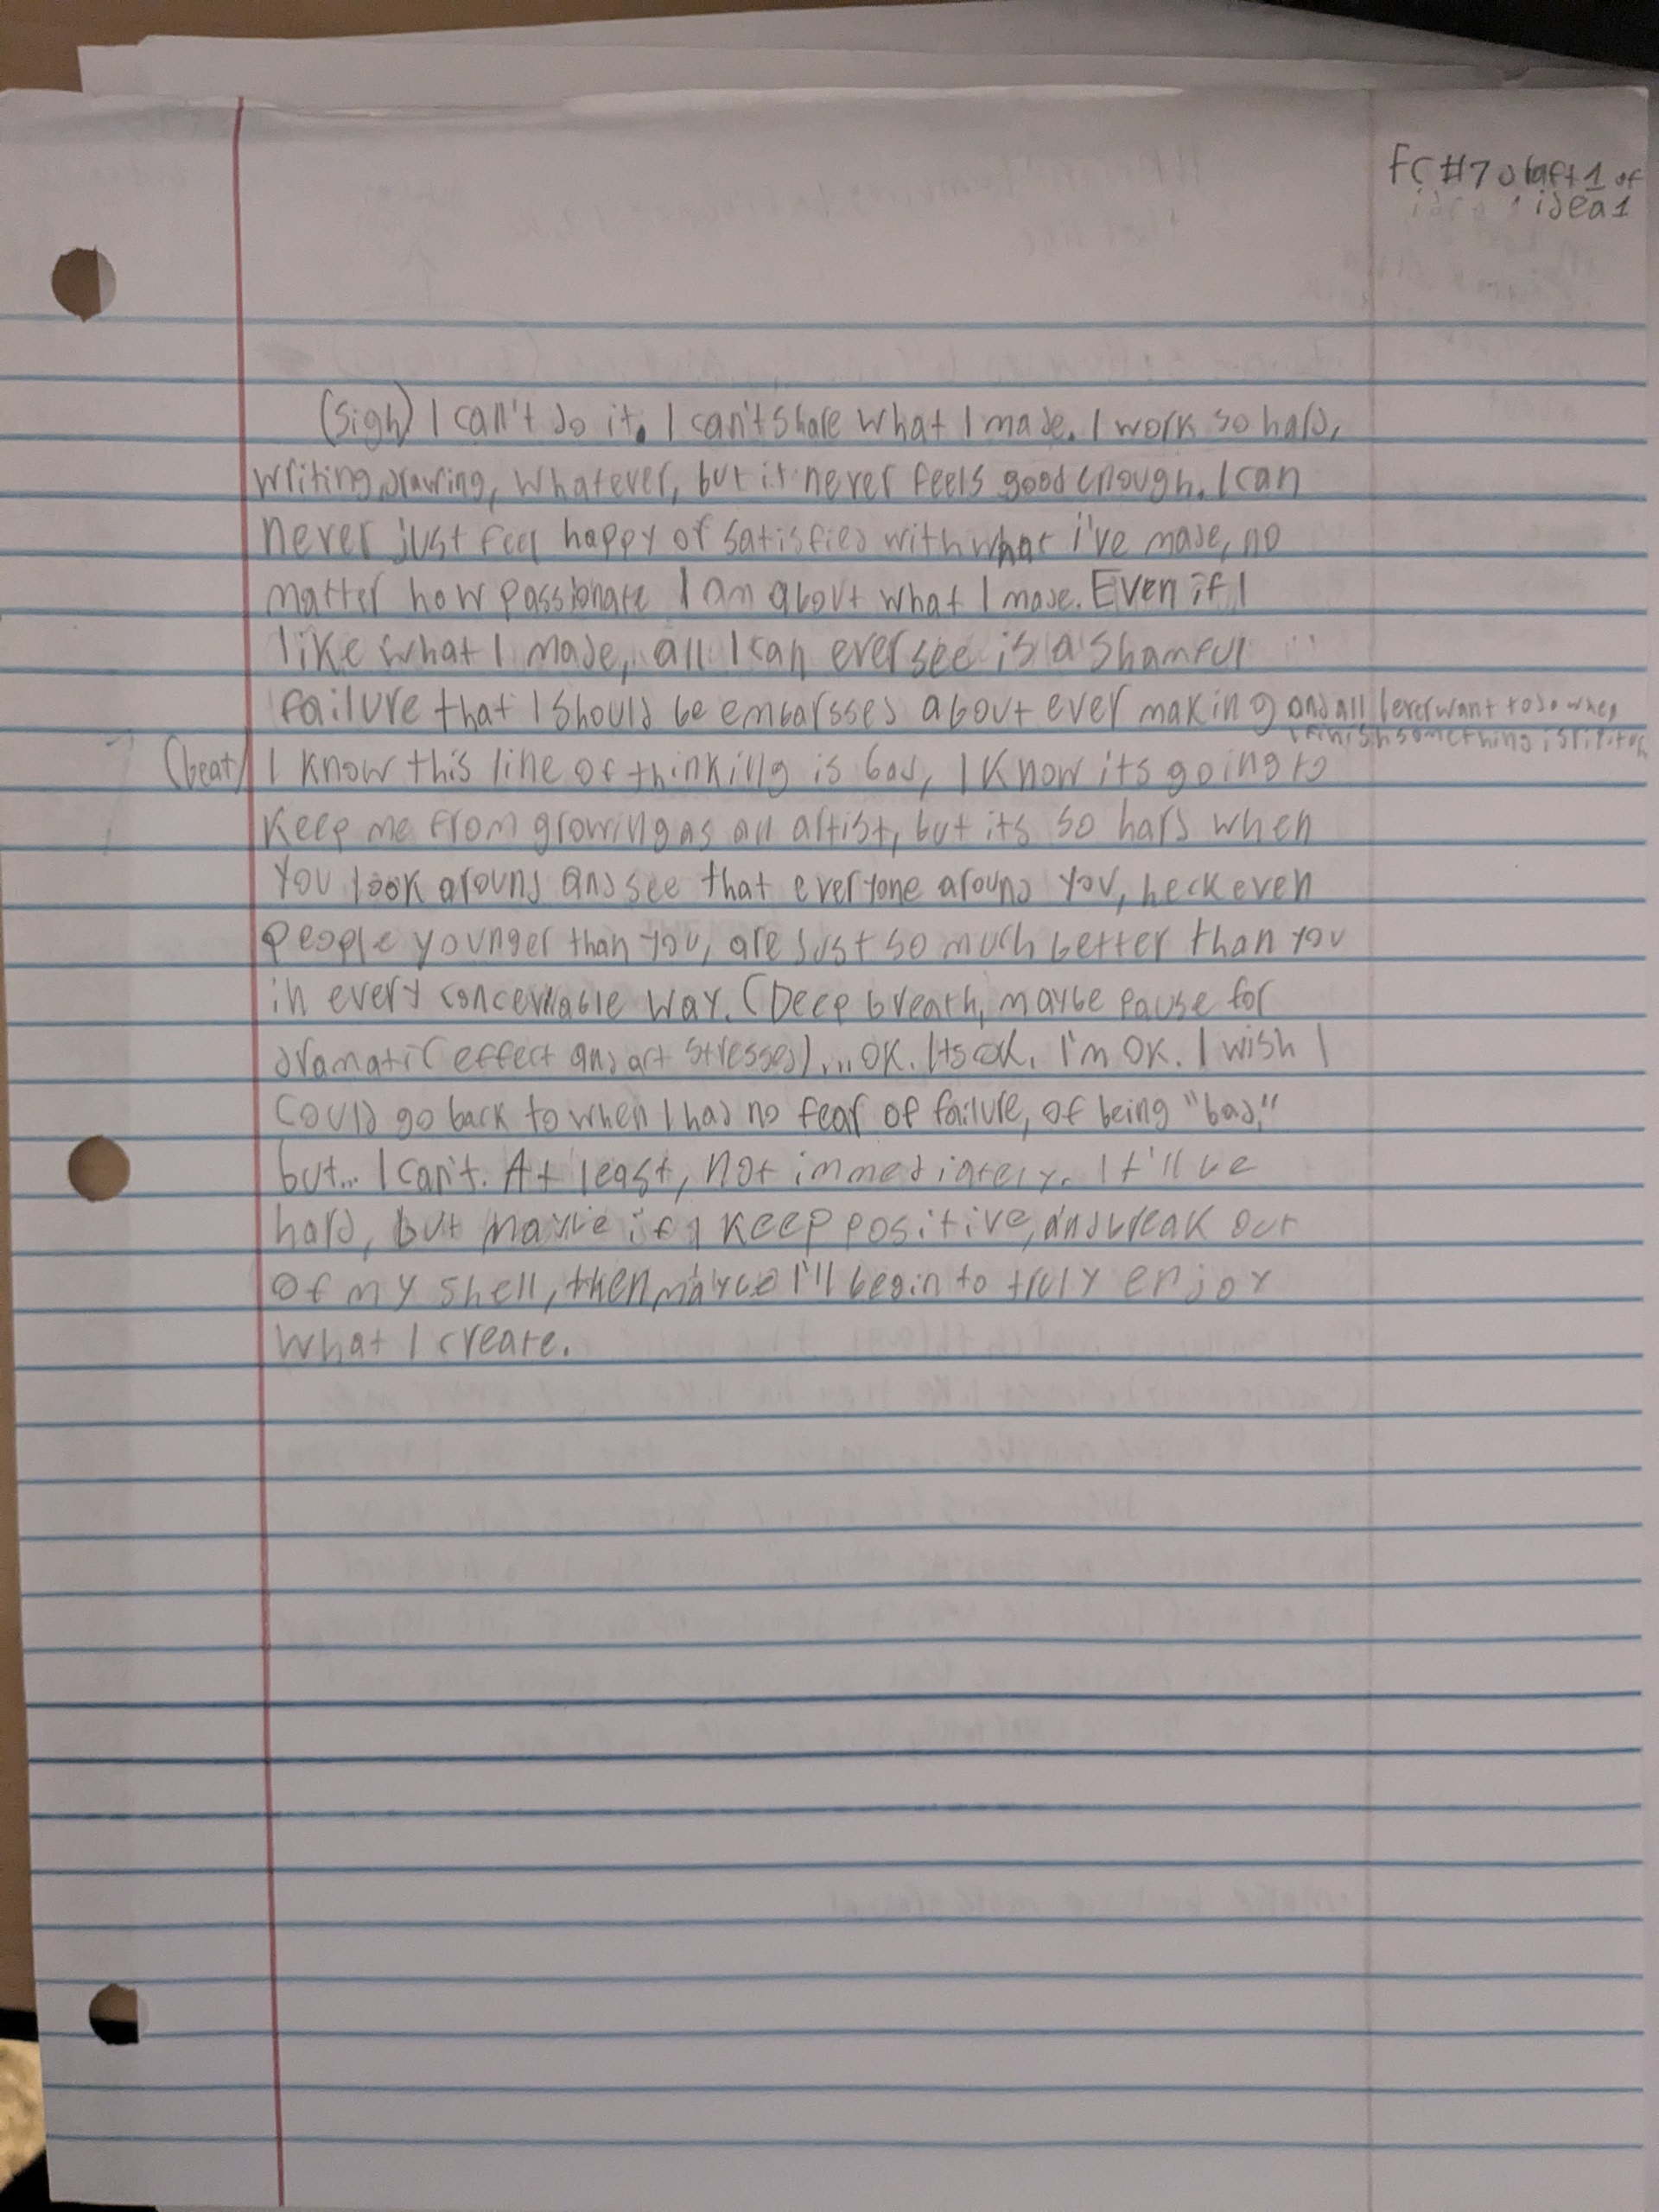 FC #7 draft 1 of
idea 1
(sigh) I can't do it. I can't share what I made. I work so hard,
writing, drawing, whatever, but it never feels good enough. I can
never just feel happy or satisfied with what i've made, no
matter how passionate I am about what I made. Even if I
like what I made, all I can ever see is a shamful
failure that I should be embarssed about ever making and all I ever want to do when
I finish something is rip it
(beat) I know this line of thinking is bad, I know its going to
keep me from growing as an artist, but its so hard when
you look around and see that everyone around you, heck even
people younger than you, are just so much better than you
in every conceviable way. (Deep breath, maybe pause for
dramatic effect and act stressed)... OK. Its ok. I'm OK. I wish I
could go back to when I had no fear of failure, of being "bad,"
but... I can't. At least, not immediately. It'll be
hard, but maybe if I keep positive, and break out
of my shell, then maybe I'll begin to truly enjoy
what I create.